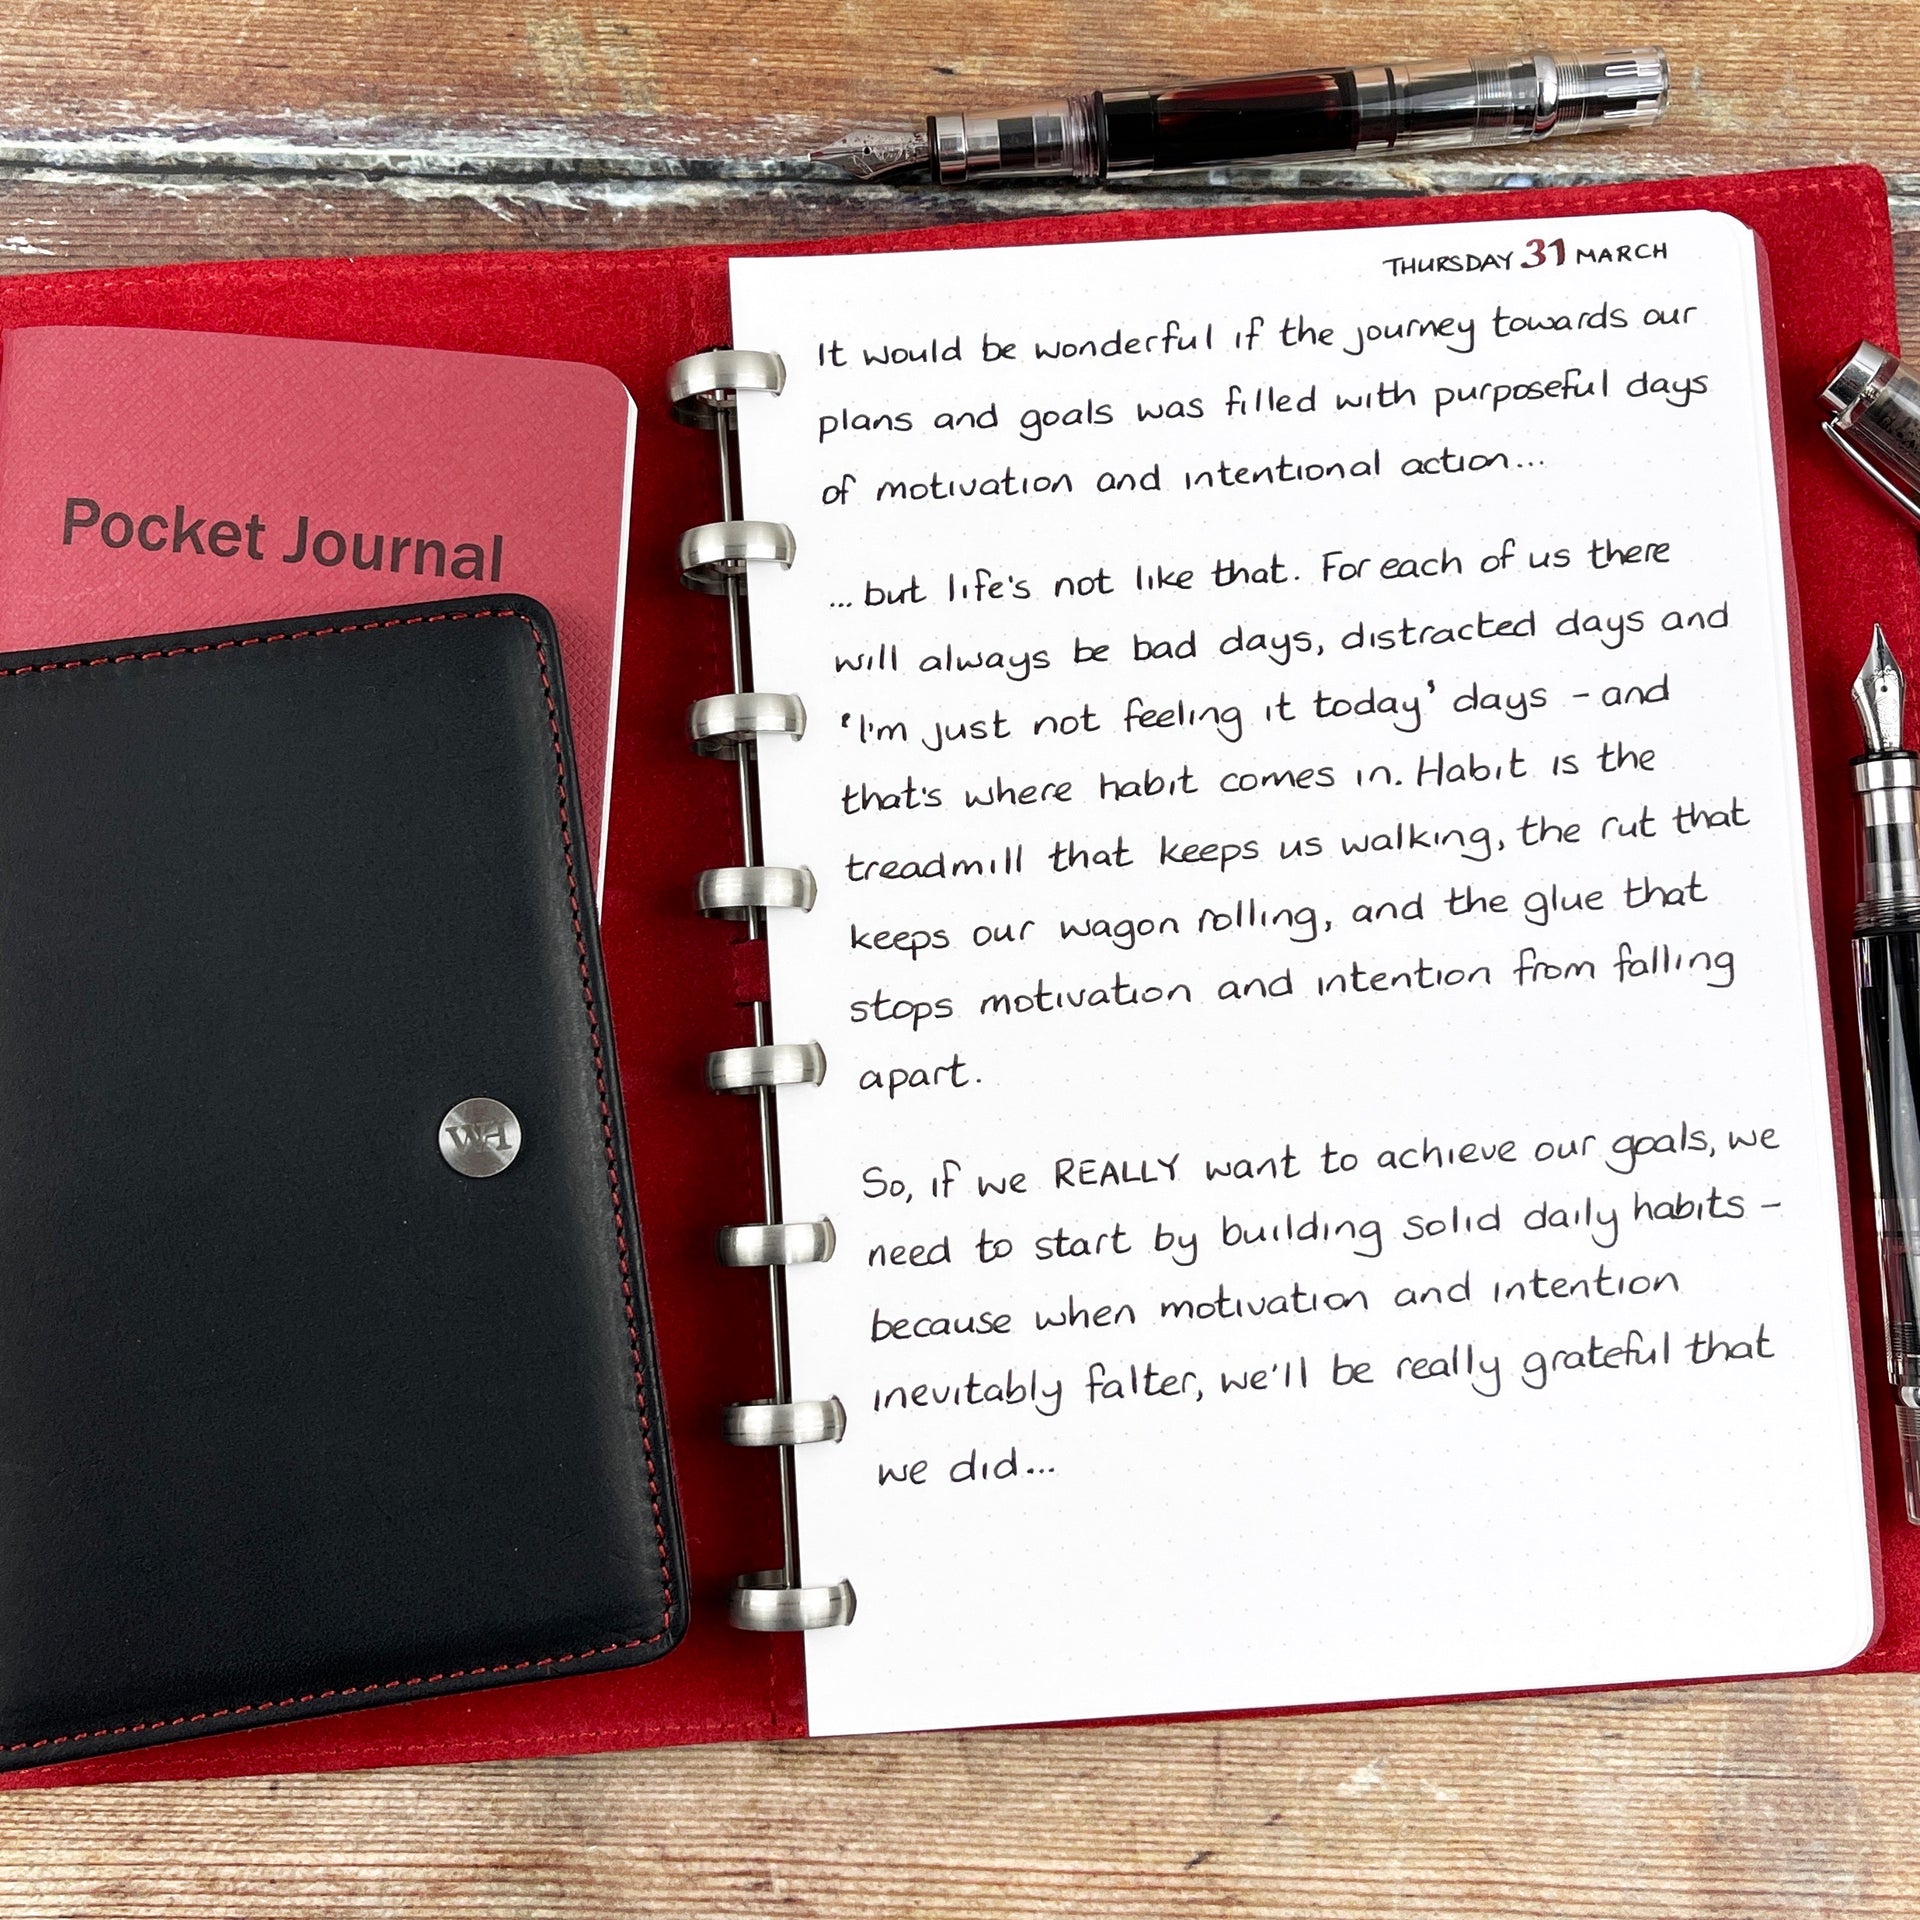 Pocket Journal
WH
THURSDAY 31 MARCH
It would be wonderful if the journey towards our
plans and goals was filled with purposeful days
of motivation and intentional action...
...but life's not like that. For each of us there
will always be bad days, distracted days and
'I'm just not feeling it today' days - and
that's where habit comes in. Habit is the
treadmill that keeps us walking, the rut that
keeps our wagon rolling, and the glue that
stops motivation and intention from falling
apart.
So, if we REALLY want to achieve our goals, we
need to start by building solid daily habits -
because when motivation and intention
inevitably falter, we'll be really grateful that
we did...